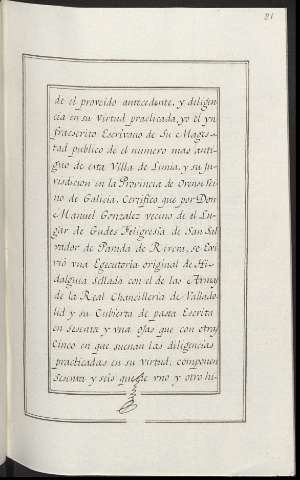 21
de el proveido antecedente, y diligen
cia en su Virtud practicada, yo él yn
fraescrito Escrivano de Su Mages
tad publico de el numero mas anti
guo de esta Villa de Limia, y su Ju
risdicion en la Provincia de Orense Rei
no de Galicia, Certifico que por Don
Manuel Gonzalez vecino de el Lu
gar de Gudes Feligresia de San Sal
vador de Parada de Rivera, se Exi
vió vna Egecutoria original de Hi
dalguia Sellada con el de las Armas
de la Real Chancilleria de Vallado
lid y su Cubierta de pasta Escrita
en sesenta y vna ojas que con otras
Cinco en que suenan las diligencias
practicadas en su virtud, componen
Sesenta y seis que de vno y otro hi-